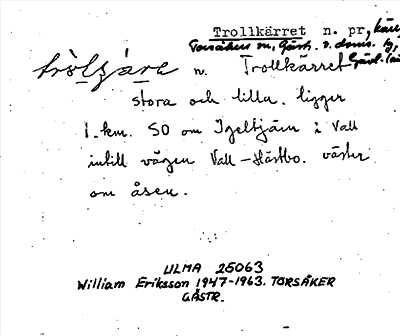 Trollkärret n. pr., kärr,
Torsåkers sn, Gästr.
n. Trollkärret Gävl. län
stora och lilla. ligger
1 km. SO om Igeltjärn i Vall
intill vägen Vall - Hästbo. väster
om åsen.
ULMA 25063
William Eriksson 1947-1963. TORSÅKER
GÄSTR.